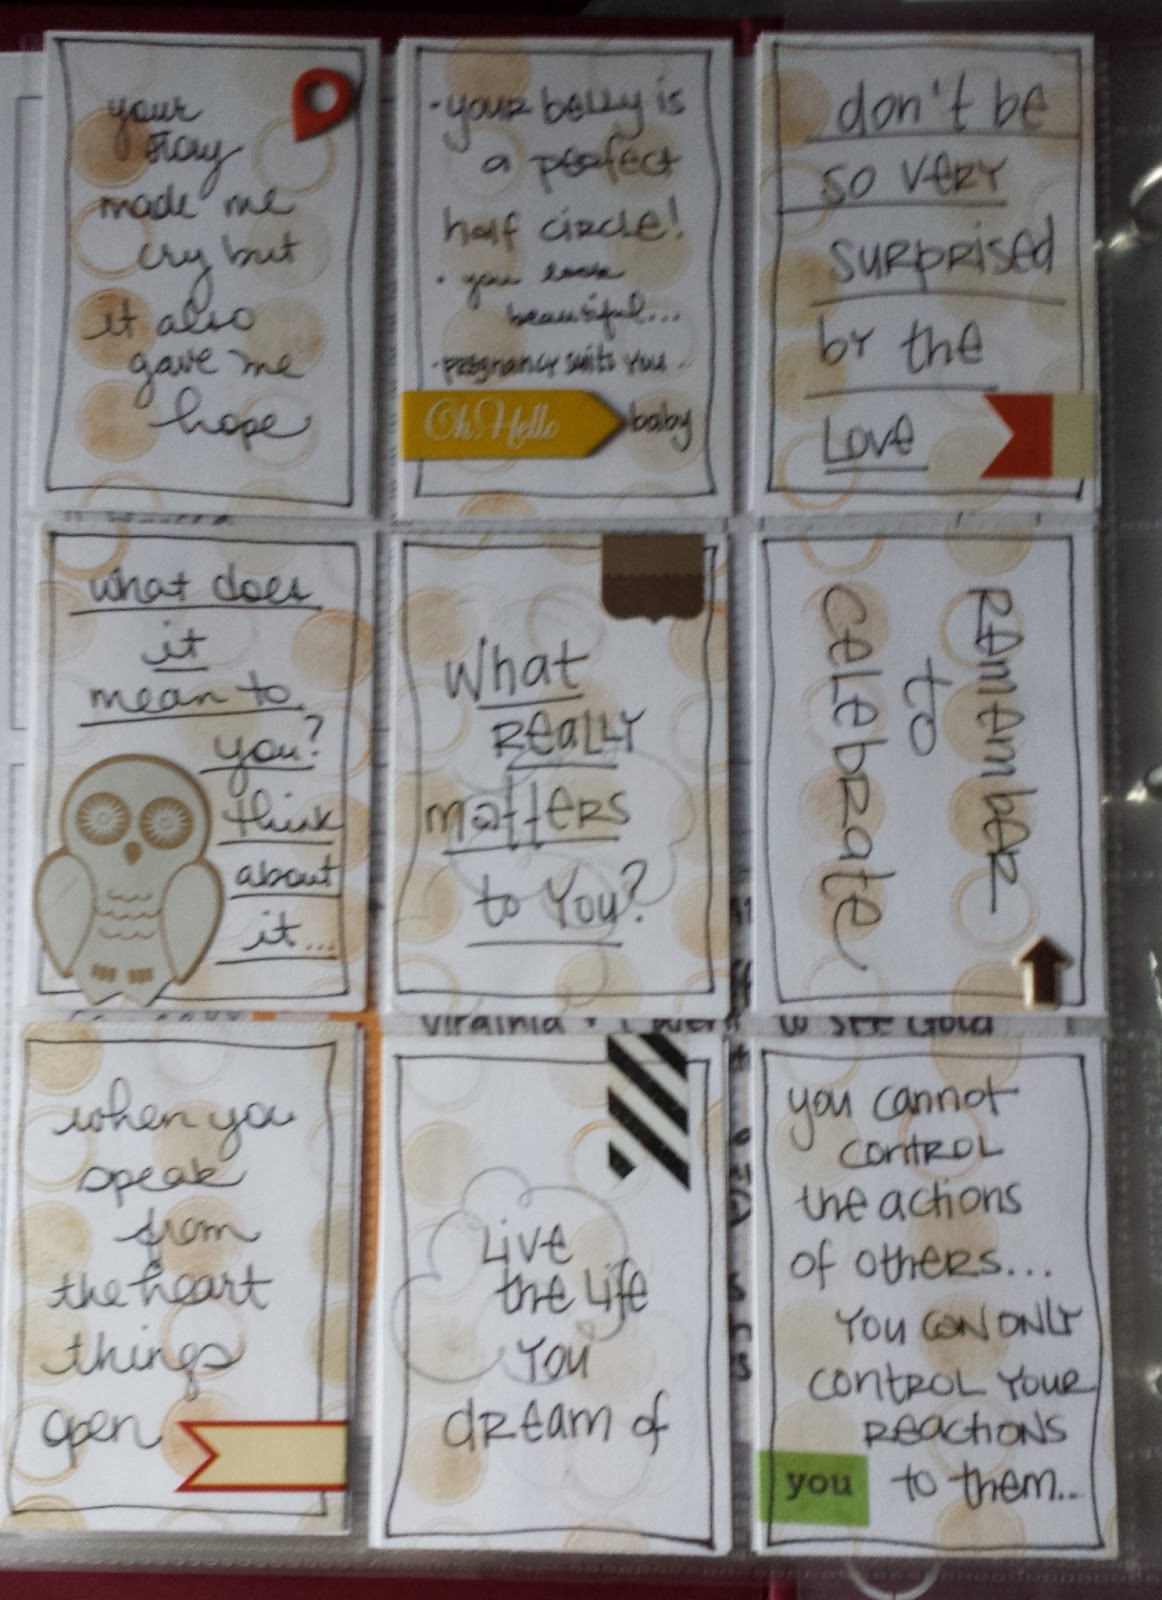 your
story
made me
cry but
it also
gave me
hope
•your belly is
a perfect
half circle!
• you look
beautiful...
•pregnancy suits you..
Oh, Hello baby
don't be
so very
surprised
by the
Love
what does
it
mean to
you?
think
about
it...
What
really
matters
to you?
remember
to
celebrate
Virginia
to see Gold
when you
speak
from
the heart
things
open
Live
the life
you
dream of
you cannot
control
the actions
of others...
you can only
control your
reactions
you to them...